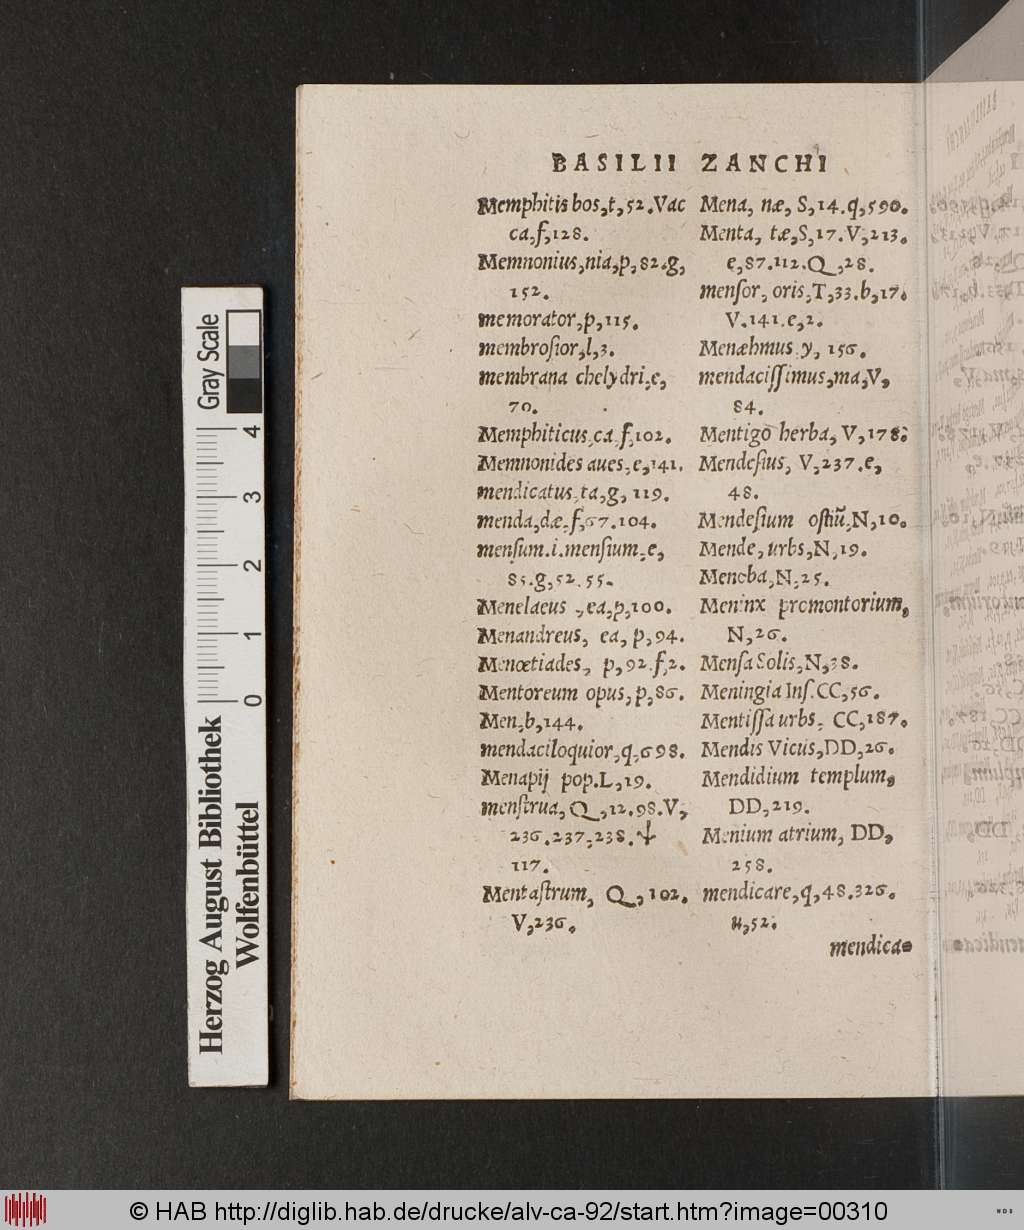 BASILII ZANCHI
Memphitis bos,t,52.Vac
ca,f,128.
Memnonius,nia,p,82.g,
152.
memorator,p,115.
membrosior,l,3.
membrana chelydri,e,
70.
Memphiticus,ca,f,102.
Memnonides aues,e,141.
mendicatus,ta,g,119.
menda,dæ,f,67.104.
menſum.i.menſium,e,
85.g,52.55.
Menelaeus,ea,p,100.
Menandreus, ea, p,94.
Menœtiades, p,92.f,2.
Mentoreum opus,p,86.
Men,b,144.
mendaciloquior,q,698.
Menapij pop.L,19.
menſtrua, Q,12.98.V,
236.237.238.
117.
Mentaſtrum, Q,102.
V,236.
Mena, næ, S,14.q,590.
Menta, tæ,S,17.V,213.
e,87.112.Q,28.
menſor, oris,T,33.b,17.
V.141.e,2.
Menæhmus.y, 156.
mendaciſſimus,ma,V,
84.
Mentigo herba, V,178.
Mendeſius, V,237.e,
48.
Mendeſium oſtiū,N,10.
Mende,urbs,N,19.
Menoba,N,25.
Meninx promontorium,
N,26.
Menſa Solis,N,38.
Meningia Inſ.CC,56.
Mentiſſa urbs, CC,187.
Mendis Vicus,DD,26.
Mendidium templum,
DD,219.
Menium atrium, DD,
258.
mendicare,q,48.326.
u,52.
mendica-
Gray Scale
4
3
2
1
0
Herzog August Bibliothek
Wolfenbüttel
© HAB http://diglib.hab.de/drucke/alv-ca-92/start.htm?image=00310